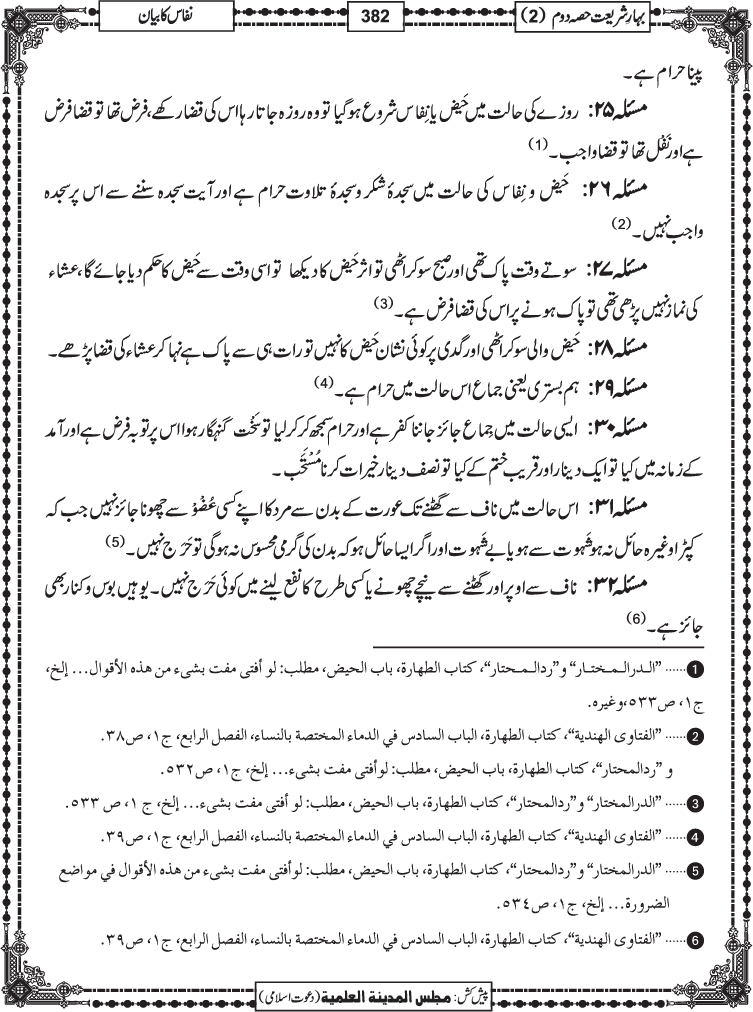 بہارِ شریعت حصہ دوم (2)
382
نفاس کا بیان
پینا حرام ہے۔
مسئلہ ۲۵: روزے کی حالت میں حَیض یا نِفاس شروع ہوگیا تو وہ روزہ جاتا رہا اس کی قضا رکھے، فرض تھا تو قضا فرض
ہے اور نَفْل تھا تو قضا واجب۔(1)
مسئلہ ۲۶: حَیض و نِفاس کی حالت میں سجدۂ شکر و سجدۂ تلاوت حرام ہے اور آیت سجدہ سننے سے اس پر سجدہ
واجب نہیں۔(2)
مسئلہ ۲۷: سوتے وقت پاک تھی اور صبح سوکر اٹھی تو اثر حَیض کا دیکھا تو اسی وقت سے حَیض کا حکم دیا جائے گا، عشاء
کی نماز نہیں پڑھی تھی تو پاک ہونے پر اس کی قضا فرض ہے۔(3)
مسئلہ ۲۸: حَیض والی سوکر اٹھی اور گدی پر کوئی نشان حَیض کا نہیں تو رات ہی سے پاک ہے نہا کر عشاء کی قضا پڑھے۔
مسئلہ ۲۹: ہم بستری یعنی جماع اس حالت میں حرام ہے۔(4)
مسئلہ ۳۰: ایسی حالت میں جِماع جائز جاننا کفر ہے اور حرام سمجھ کر کر لیا تو سَخْت گنہگار ہوا اس پر توبہ فرض ہے اور آمد
کے زمانہ میں کیا تو ایک دینار اور قریب ختم کے کیا تو نصف دینار خیرات کرنا مُسْتَحَب ۔
مسئلہ ۳۱: اس حالت میں ناف سے گھٹنے تک عورت کے بدن سے مرد کا اپنے کسی عُضْوْ سے چھونا جائز نہیں جب کہ
کپڑا وغیرہ حائل نہ ہو شَہوت سے ہو یا بے شَہوت اور اگر ایسا حائل ہو کہ بدن کی گرمی محسوس نہ ہوگی تو حَرَج نہیں۔(5)
مسئلہ ۳۲: ناف سے اوپر اور گھٹنے سے نیچے چھونے یا کسی طرح کا نفع لینے میں کوئی حَرَج نہیں۔ یوہیں بوس و کنار بھی
جائز ہے۔(6)
1 ...... ”الـدرالـمـختـار“ و”ردالـمـحتار“، کتاب الطهارة، باب الحيض، مطلب: لو أفتى مفت بشيء من هذه الأقوال... إلخ،
ج١، ص٥٣٣، وغيره.
2 ...... ”الفتاوى الهندية“، كتاب الطهارة، الباب السادس في الدماء المختصة بالنساء، الفصل الرابع، ج١، ص٣٨.
و ”ردالمحتار“، كتاب الطهارة، باب الحيض، مطلب: لوأفتى مفت بشيء... إلخ، ج١، ص٥٣٢.
3 ...... ”الدرالمختار“ و”ردالمحتار“، كتاب الطهارة، باب الحيض، مطلب: لو أفتى مفت بشيء... إلخ، ج ١، ص ٥٣٣.
4 ...... ”الفتاوى الهندية“، كتاب الطهارة، الباب السادس في الدماء المختصة بالنساء، الفصل الرابع، ج١، ص٣٩.
5 ...... ”الدرالمختار“ و”ردالمحتار“، كتاب الطهارة، باب الحيض، مطلب: لوأفتى مفت بشيء من هذه الأقوال في مواضع
الضرورة... إلخ، ج١، ص٥٣٤.
6 ...... ”الفتاوى الهندية“، كتاب الطهارة، الباب السادس في الدماء المختصة بالنساء، الفصل الرابع، ج١، ص٣٩.
پیش کش: مجلس المدينة العلمية (دعوت اسلامی)